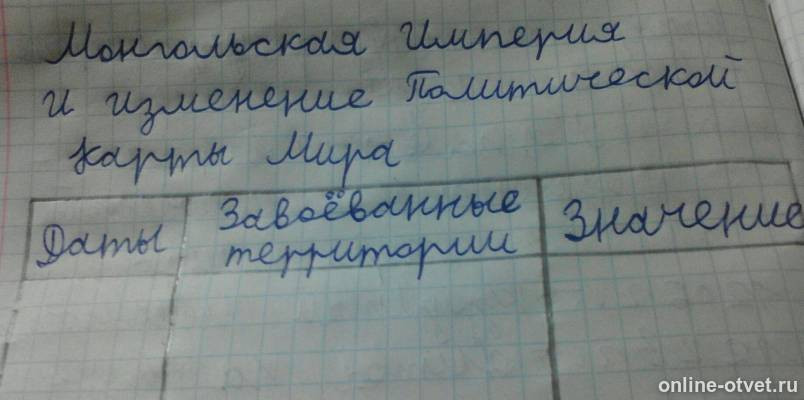 Монгольская Империя
и изменение Политической
карты Мира
Даты
Завоёванные
территории
Значение
online-otvet.ru